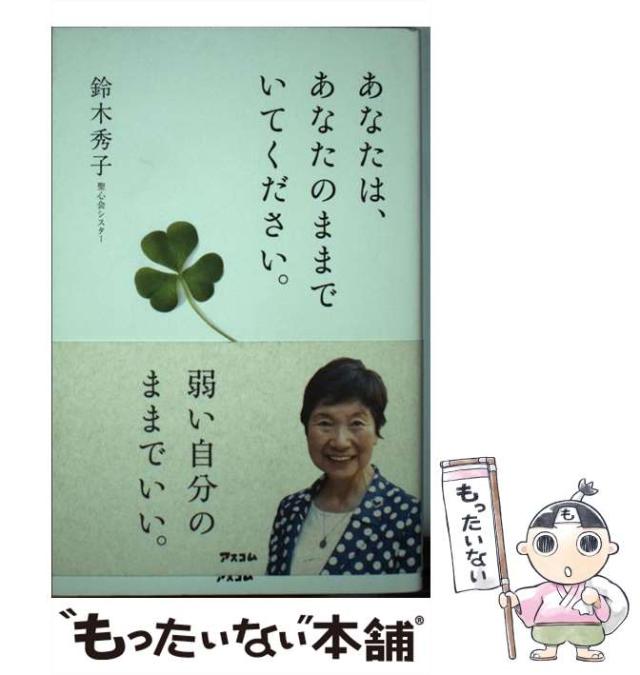 あなたは、
あなたのままで
いてください。
鈴木秀子
聖心会シスター
弱い自分の
ままでいい。
アスコム
アスコム
もったいない
も
“もったいない”本舗®